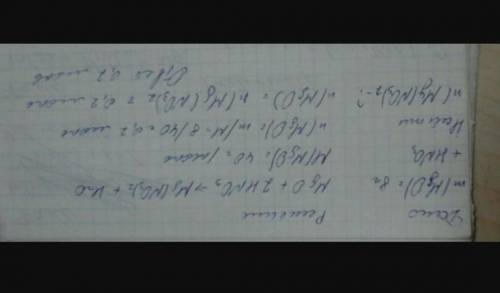 Дано
Решение
m(MgO)=8г
MgO + 2HNO3 → Mg(NO3)2 + H2O
+ HNO3
M(MgO)=40г/моль
Найти
n(MgO)=m/M=8/40=0,2 моль
n(Mg(NO3)2-?
n(MgO)=n(Mg(NO3)2=0,2 моль
Ответ 0,2 моль